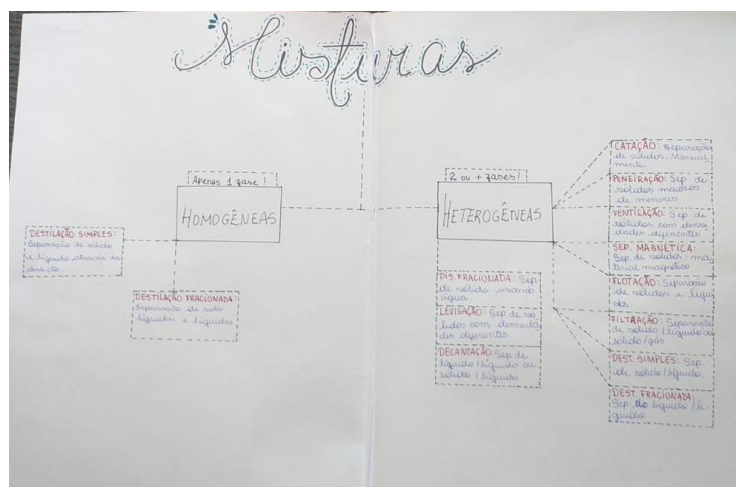 Misturas
Apenas 1 fase!
HOMOGÊNEAS
DESTILAÇÃO SIMPLES:
Separação de sólido
e líquido através da
DESTILAÇÃO FRACIONADA:
Separação de
líquidos e líquidos
2 ou + fases!
HETEROGÊNEAS
DIS. FRACIONADA: Sep
de sólido usando
água
LEVIGAÇÃO: Sep de só
lidos com densida
des diferentes
DECANTAÇÃO: Sep de
líquido / líquido ou
sólido / líquido
CATAÇÃO: Separação
de sólidos. Manual
mente.
PENEIRAÇÃO: Sep. de
sólidos maiores
de menores
VENTILAÇÃO: Sep de
sólidos com densi
dades diferentes
SEP. MAGNÉTICA:
Sep. de sólidos: ma
terial magnético
FLOTAÇÃO: Separação
de sólidos e líqui
dos
FILTRAÇÃO: Separação
de sólido / líquido ou
sólido / gás
DEST. SIMPLES: Sep.
de sólido / líquido
DEST. FRACIONADA:
Sep de líquido / lí
quido